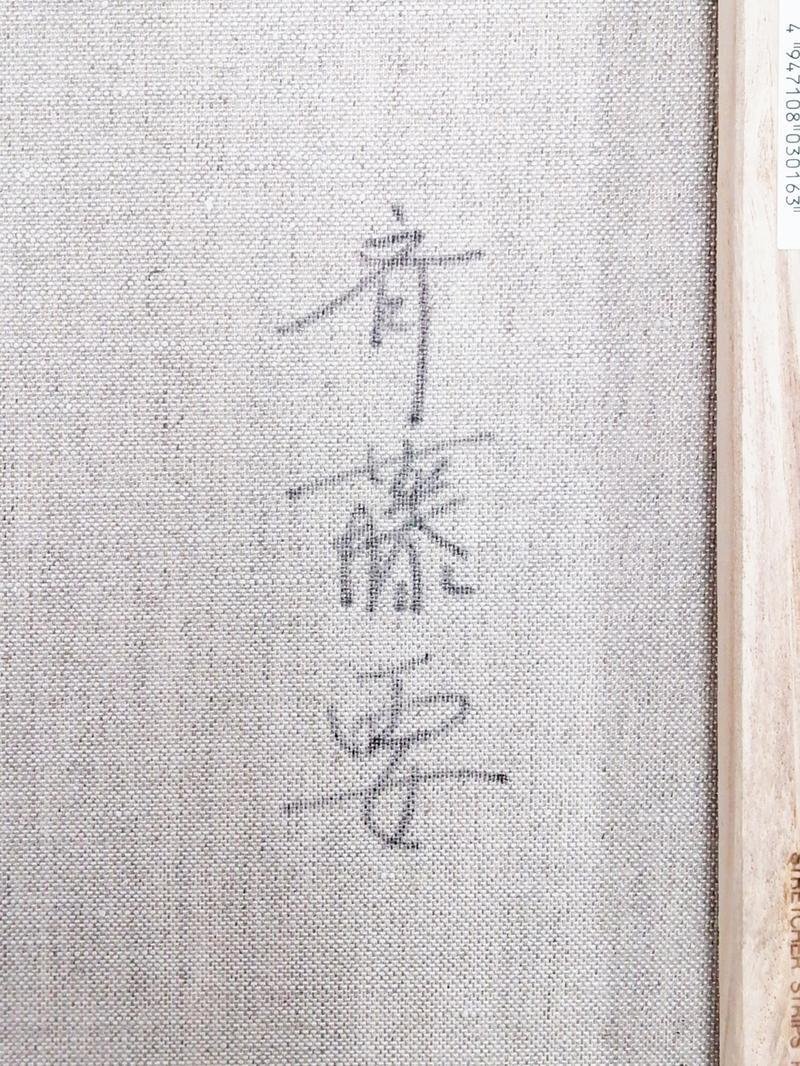 斉藤要
4 947108 030163
STRETCHER STRIPS